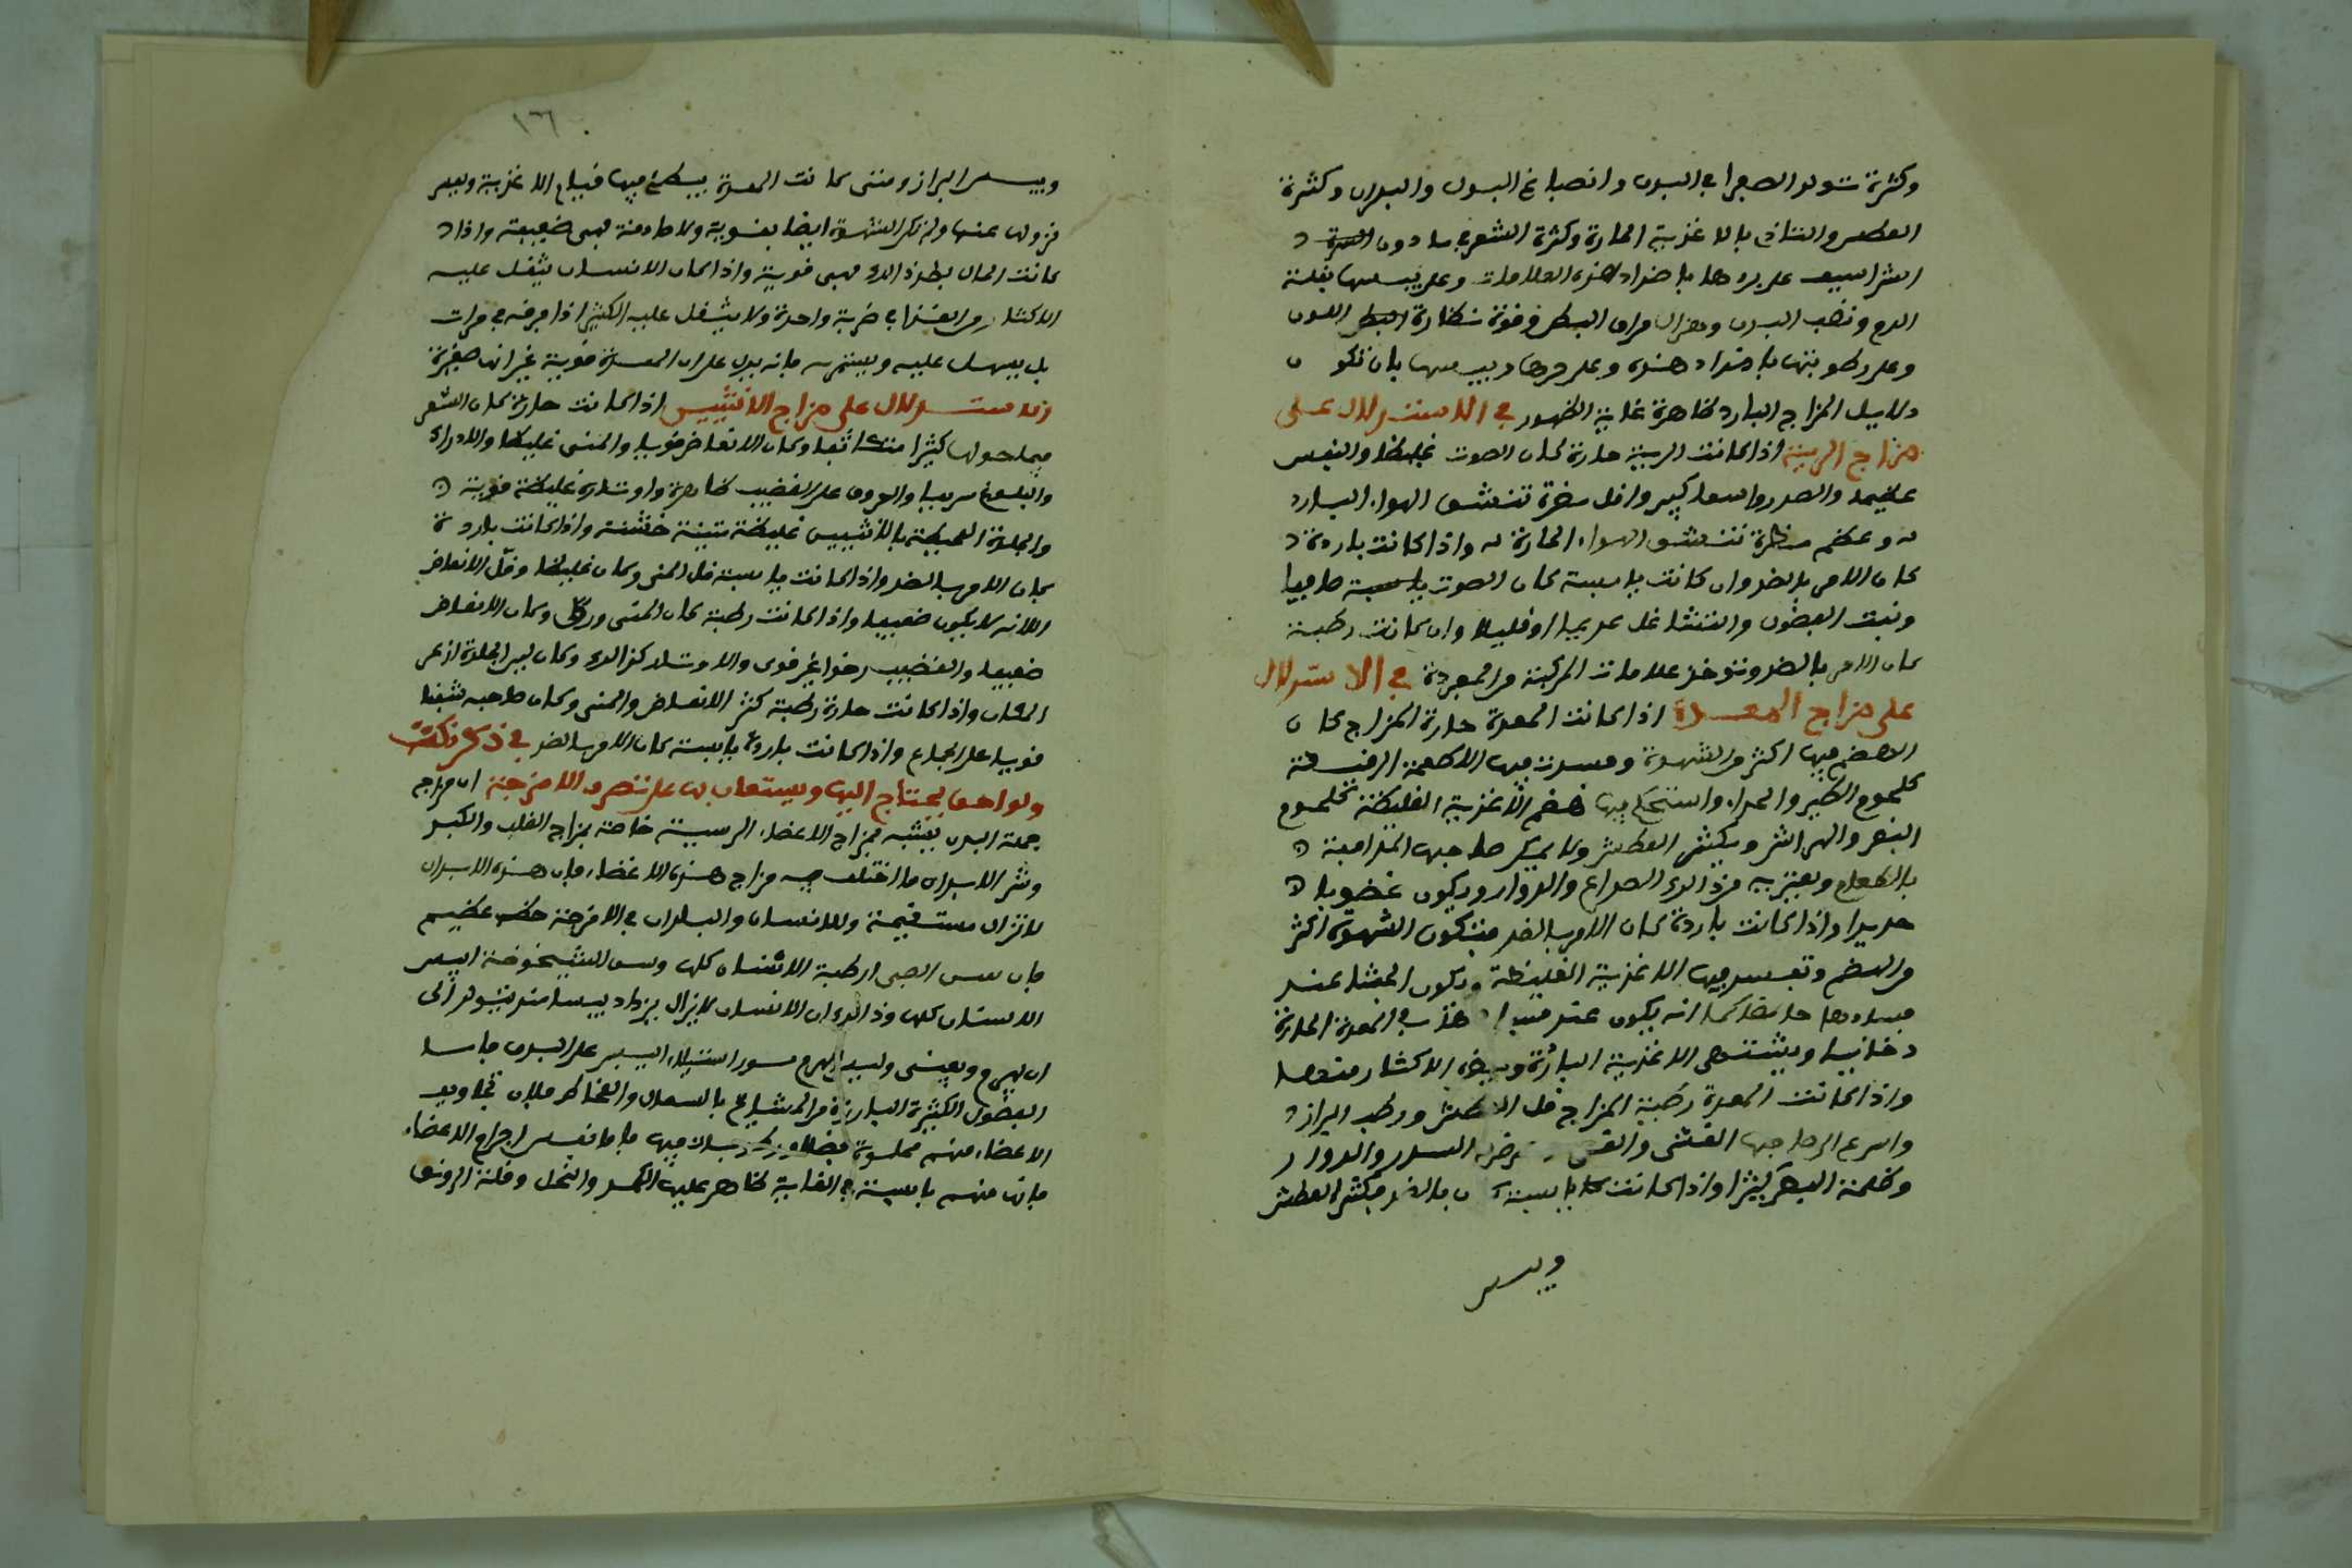 وكثرة تولد الصفرا في البدن وانصباغ البول والبدن وكثرة
العطس والتاذي بالاغذية الحارة وكثرة الشعر في ما دون
الشراسيف على بردها باضداد هذه العلامات وعلى يبسها بقلة
الدم وقضب البدن وهزال مراق البطن وقوة نظارة اللون
وعلى رطوبتها باضداد هذه وعلى حرها ويبسها بان تكون
دلايل المزاج البارد ظاهرة غاية الظهور في الاستدلال على
مزاج الرية اذا كانت الرية حارة كان الصوت غليظا والنفس
عظيما والصدر واسعا كبيرا وقل ضرة تنشق الهواء البارد
له وعظم مضرة تنشق الهواء الحارة له واذا كانت باردة
كان الامر بالضد وان كانت يابسة كان الصوت صافيا
وان كانت رطبة
كان الامر بالضد وتوخذ علامات المركبة من المفردة في الاستدلال
على مزاج المعدة اذا كانت المعدة حارة المزاج كان
الهضم فيها اكثر من الشهوة وفسدت فيها الاطعمة الرقيقة
كلحوم الطير والجداء واستحكم فيها هضم الاغذية الغليظة كلحوم
البقر والهرايس ويكثر العطش ولا يمكن صاحبها المدافعة
بالطعام ويعتريه من ذلك الصداع والدوار ويكون غضوبا
حديدا واذا كانت باردة كان الامر بالضد فتكون الشهوة اكثر
من الهضم وتفسد فيها الاغذية الغليظة ويكون الجشا عند
فسادها حامضا كما انه يكون عند فساد هذه في المعدة الحارة
دخانيا ويشتهي الاغذية الباردة ويضره الاكثار منها
واذا كانت المعدة رطبة المزاج قل العطش ورطب البراز
واسرع الى صاحبها الغشي والقي السدر والدوار
وظلمة البصر كثيرا واذا كانت يابسة بالضد فيكثر العطش
وييبس
١٦٦
وييبس البراز ومتى كانت المعدة يبطئ فيها قيام الاغذية ويعسر
نزولها عنها ولم تكن الشهوة ايضا بقوية ولا صادقة فهي ضعيفة واذا
كانت الحال بضد ذلك فهي قوية واذا كان الانسان يثقل عليه
الاكثار من الغذا في ضربة واحدة ولا يثقل عليه الكثير اذا فرقه في مرات
بل يسهل عليه ويستمريه فانه يدل على ان المعدة قوية غير انها صغيرة
الاستدلال على مزاج الانثيين اذا كانت حارة كان الشعر
فيما حولها كثيرا متكاثفا وكان الانعاض قويا والمنى غليظا والادراك
والبلوغ سريعا والعروق على القضيب ظاهرة واوتاره غليظة قوية
والجلدة المحيطة بالانثيين غليظة متينة خشنة واذا كانت باردة
كان الامر بالضد واذا كانت يابسة قل المنى وكان غليظا وقل الانعاض
الا انه لا يكون ضعيفا واذا كانت رطبة كان المنى ورق وكان الانعاض
ضعيفا والقضيب رخوا غير قوي والاوتار كذلك وكان لين الجلدة ازعر
المكان واذا كانت حارة رطبة كثر الانعاض والمنى وكان صاحبه شبقا
قويا على الجماع واذا كانت باردة يابسة كان الامر بالضد في ذكر نكت
ولواحق يحتاج اليها ويستعان بها على تعرف الامزجة ان مزاج
جملة البدن يشبه مزاج الاعضاء الرئيسية خاصة بمزاج القلب والكبد
وشر الابدان ما اختلف فيه مزاج هذه الاعضاء فان هذه الابدان
لا تزال مستقيمة وللانسان والبلدان في الامزجة حظ عظيم
فان سن الصبى ارطب الاسنان كلها وسن الشيخوخة ايبس
الاسنان كلها وذلك ان الانسان لا يزال يزداد يبسا منذ يتولد الى
ان يهرم ويفنى وليس الهرم سوى استيلاء اليبس على البدن فاما
الفضول الكثيرة البارزة من المشايخ بالسعال والمخاط فلان تجاويف
الاعضاء منهم مملوة فضلا فيها فاما نفس اجرام الاعضاء
فانها منهم يابسة في الغاية ظاهر عليها الكمد والنحل وقلة الرونق